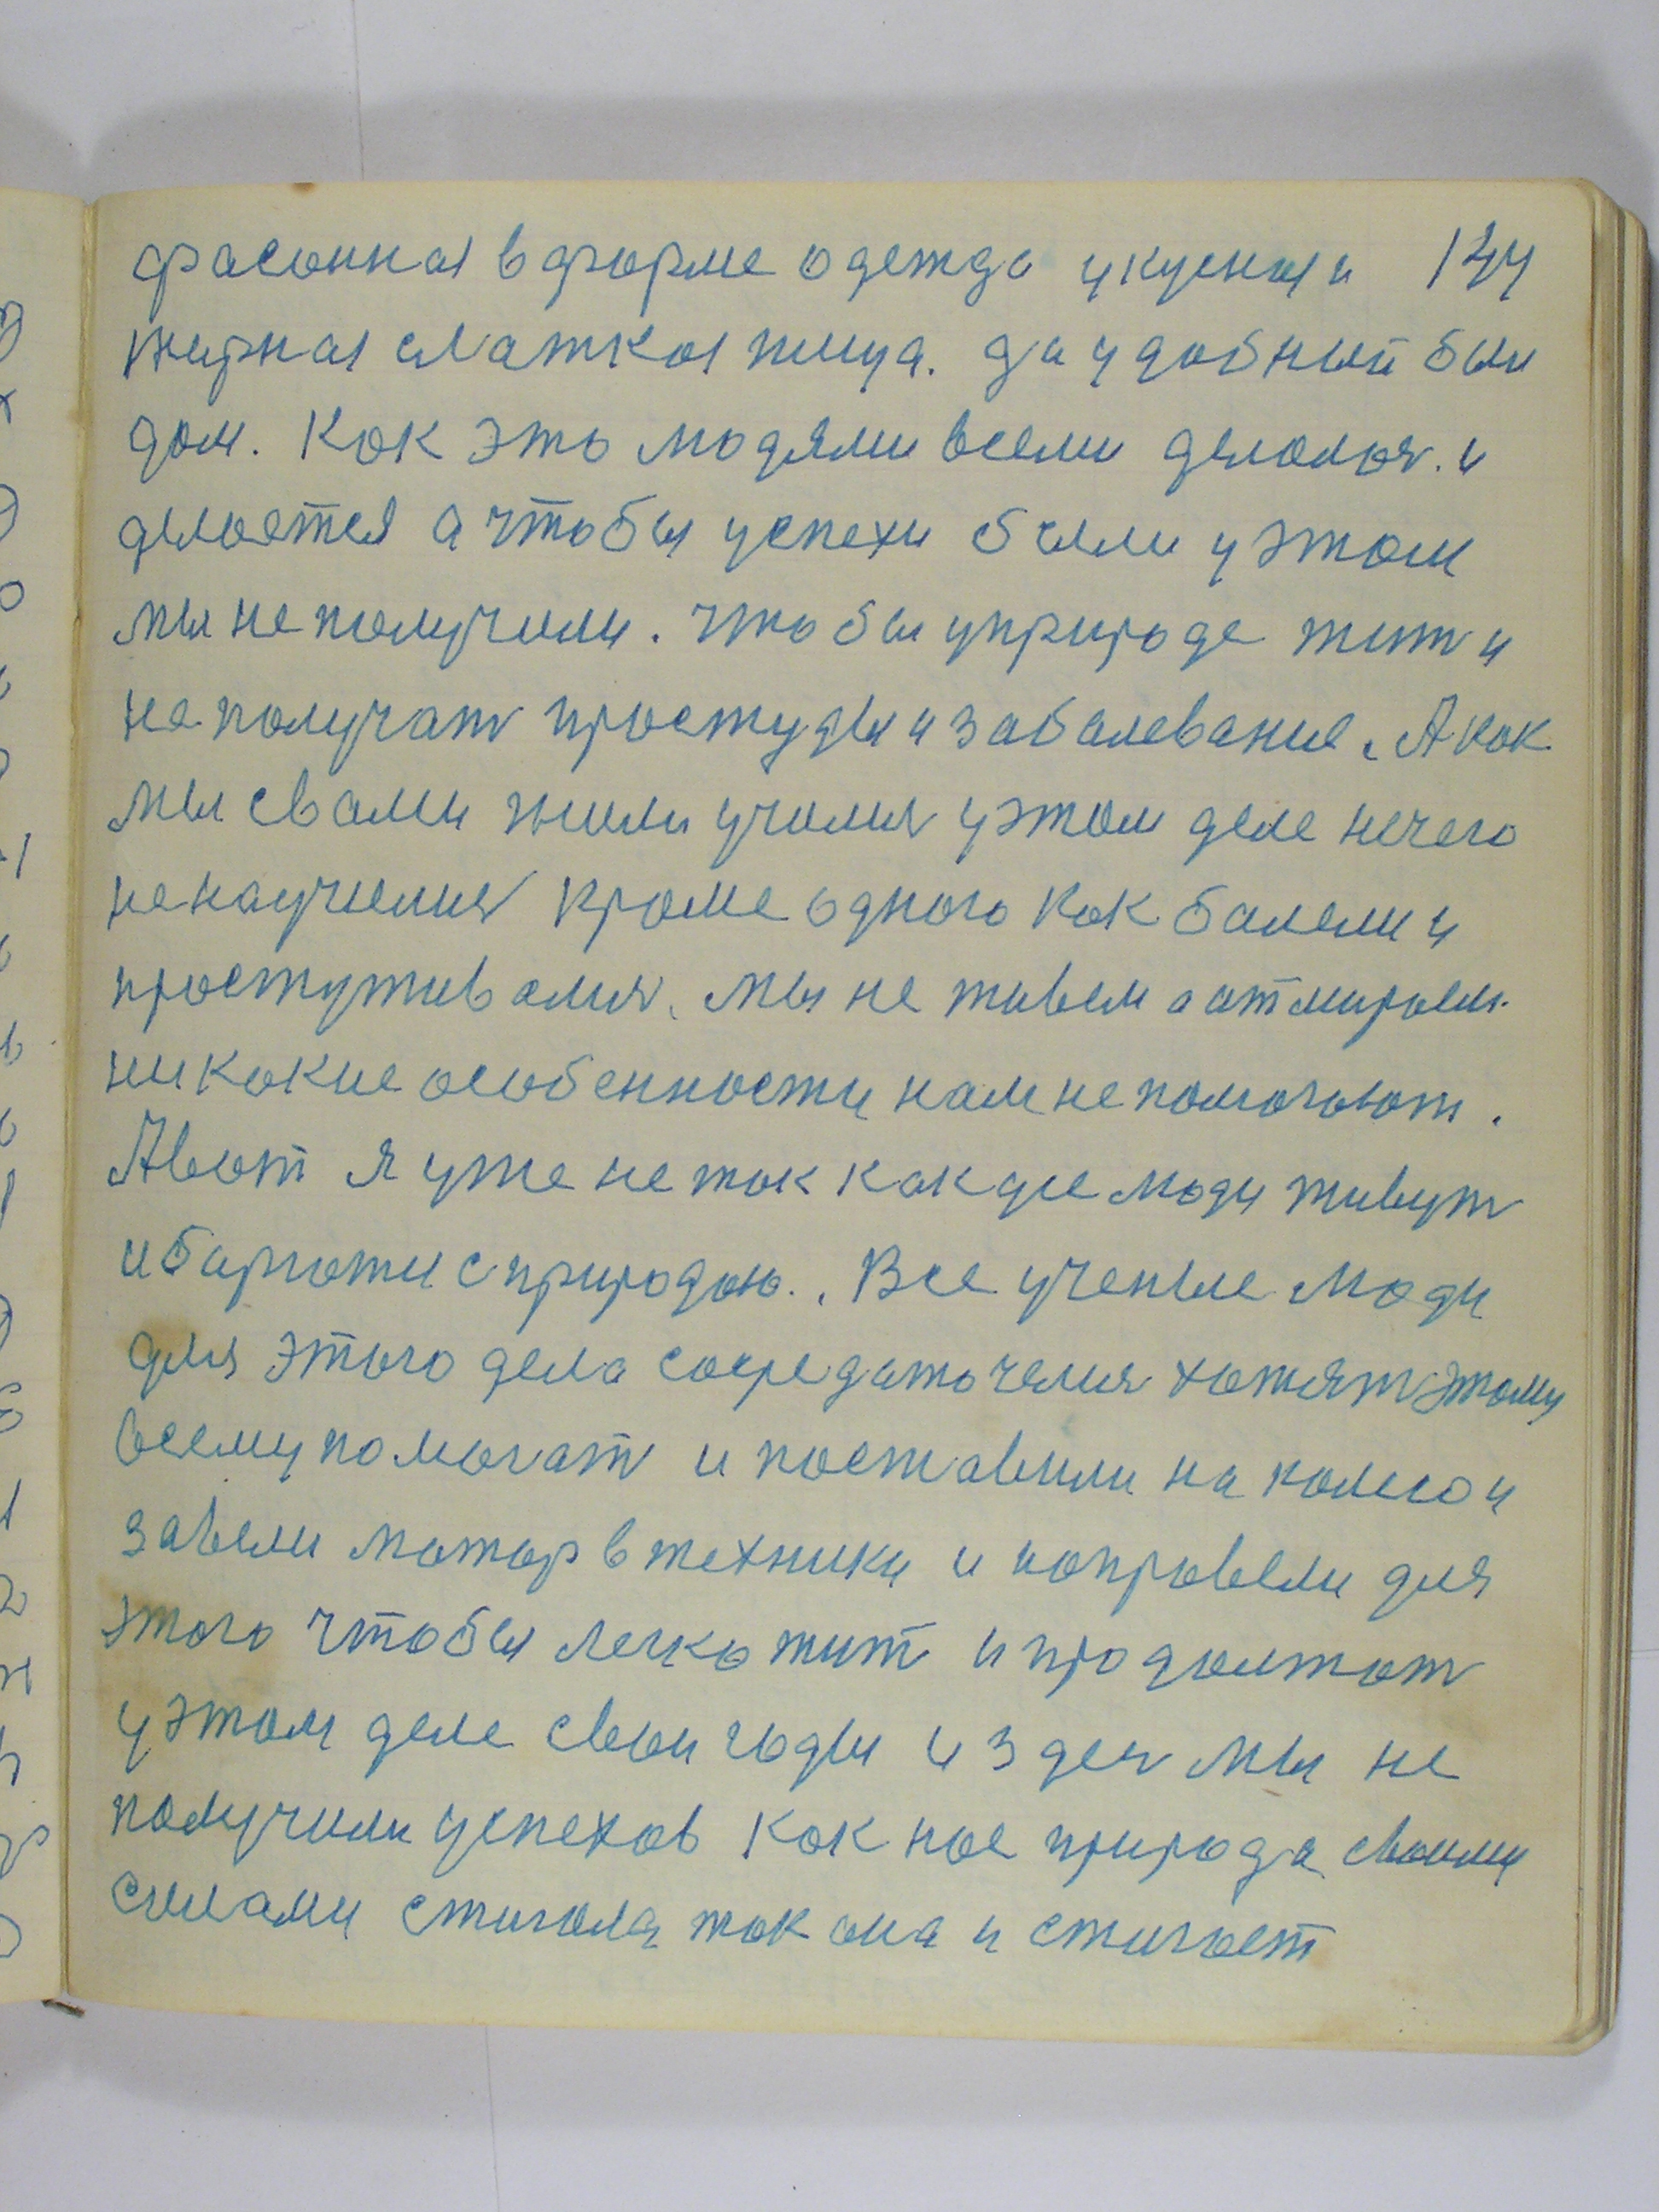 фасонная в форме одежда укусная и 144
жирная слаткая пища. да удобный был
дом. Как это людями всеми делалося. и
делается а чтобы успехи были у этом
мы не получили. чтобы у природе жит и
не получат простуды и заболевание. А как
мы свами жили училися у этом деле нечего
не научелися кроме одного как балели и
простужив алися. мы не живем а атмираем.
ни какие особенности нам не помогают.
А вот я уже не так как усе люди живут
и баряюти с природаю. . Все ученые люди
для этого дела сосредаточелися хотят этому
всему помогат и поставили на колесо и
завели матор в техники и направели для
этого чтобы легко жит и продолжат
у этом деле свои годы и здес мы не
получили успехов как нас природа своими
силами стигала так она и стигает